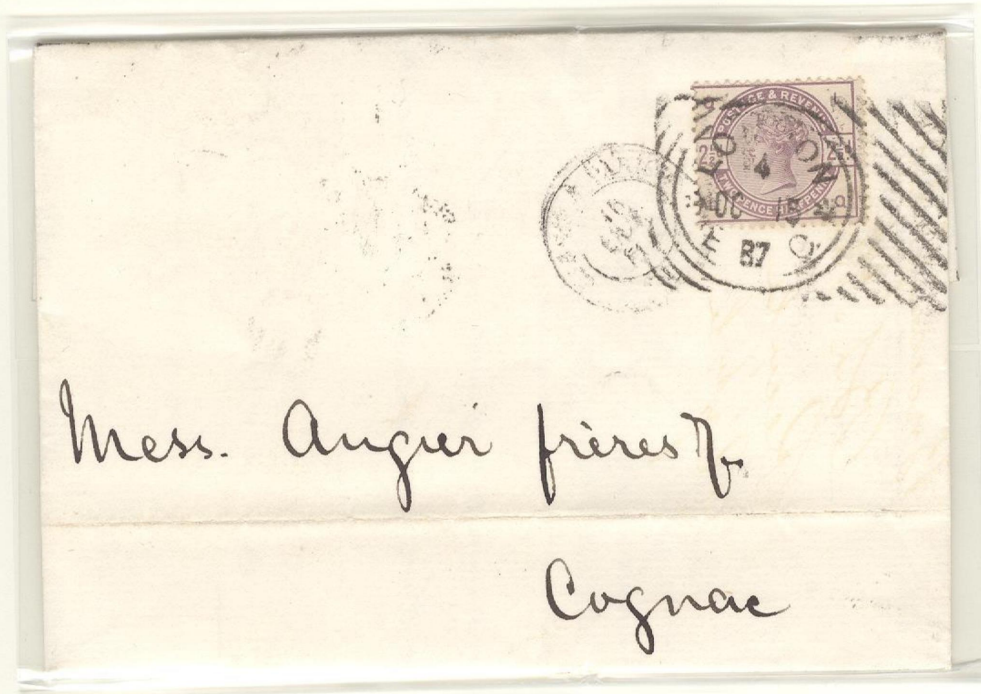 POSTAGE & REVENUE
2½
2½
LONDON
4
OC 15
87
E C
Mess. Augier frères &
Cognac